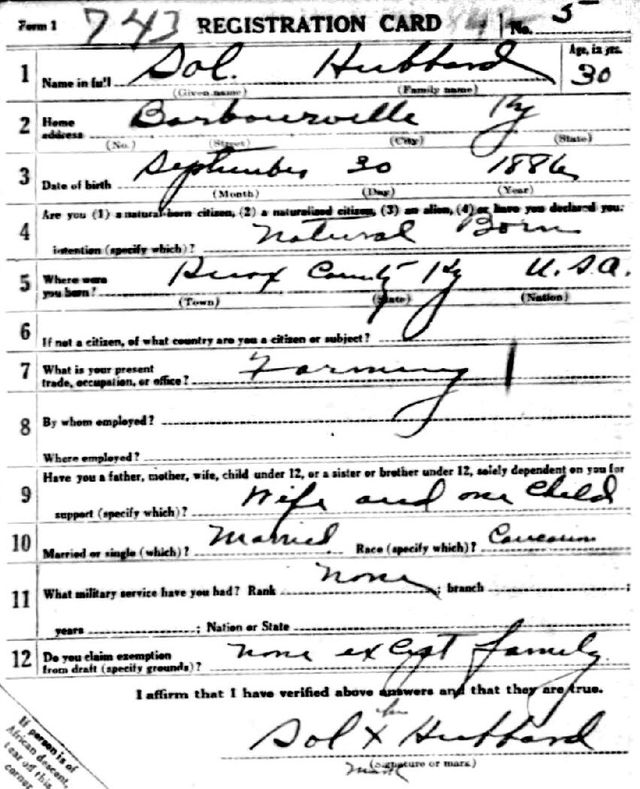 Form 1 743 REGISTRATION CARD No. 5
1 Name in full Sol. Hubbard Age, in yrs. 30
(Given name) (Family name)
2 Home address Barbourville Ky
(No.) (Street) (City) (State)
3 Date of birth September 30 1886
(Month) (Day) (Year)
4 Are you (1) a natural-born citizen, (2) a naturalized citizen, (3) an alien, (4) or have you declared your
intention (specify which)? Natural Born
5 Where were you born? Knox County Ky U.S.A.
(Town) (State) (Nation)
6 If not a citizen, of what country are you a citizen or subject?
7 What is your present trade, occupation, or office? Farming
8 By whom employed?
Where employed?
9 Have you a father, mother, wife, child under 12, or a sister or brother under 12, solely dependent on you for
support (specify which)? Wife and one child
10 Married or single (which)? Married Race (specify which)? Caucasian
11 What military service have you had? Rank none ; branch ;
years ; Nation or State
12 Do you claim exemption from draft (specify grounds)? none except family
I affirm that I have verified above answers and that they are true.
his
Sol X Hubbard
(Signature or mark)
mark
If person is of
African descent,
tear off this
corner